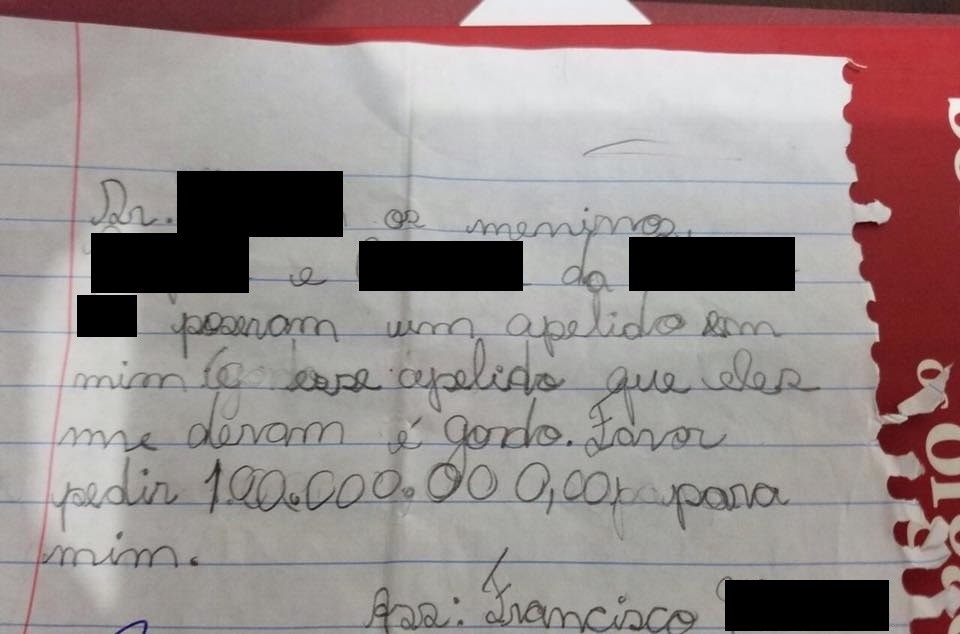 Dr. os meninos,
e da
poseram um apelido em
mim esse apelido que eles
me deram é gordo. Favor
pedir 100.000.000,00 para
mim.
Ass: Francisco